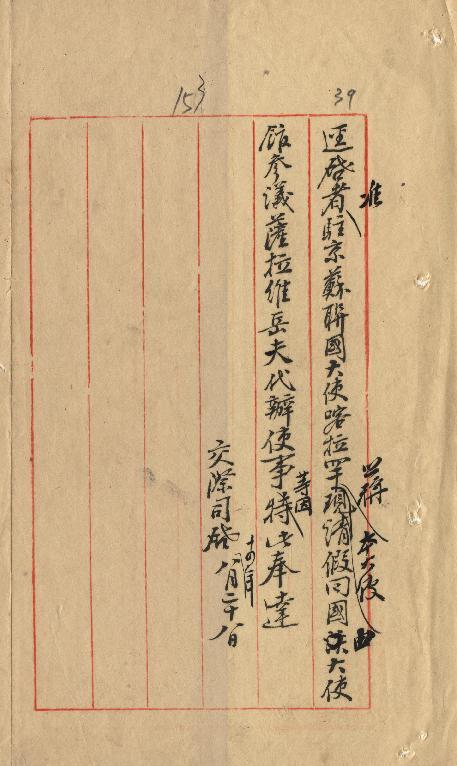 39
153
准
稱 本大使 由
逕啓者駐京蘇聯國大使喀拉罕現請假回國該大使
等因
館參議薩拉維岳夫代辦使事特此奉達
十四年
交際司啓 八月二十八日